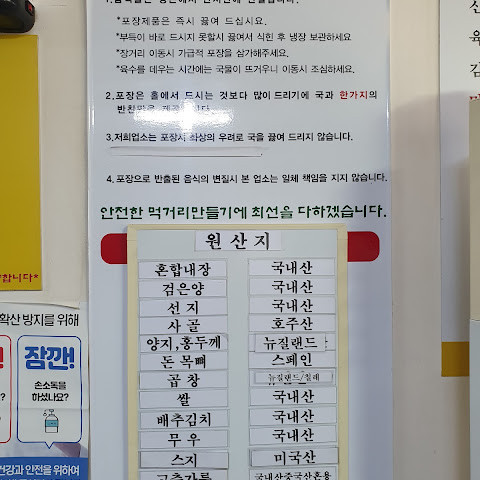 *포장제품은 즉시 끓여 드십시요.
*부득이 바로 드시지 못할시 끓여서 식힌 후 냉장 보관하세요
*장거리 이동시 가급적 포장을 삼가해주세요.
*육수를 데우는 시간에는 국물이 뜨거우니 이동시 조심하세요.
2.포장은 홀에서 드시는 것보다 많이 드리기에 국과 한가지의
반찬만을
3.저희업소는 포장시 화상의 우려로 국을 끓여 드리지 않습니다.
4.포장으로 반출된 음식의 변질시 본 업소는 일체 책임을 지지 않습니다.
안전한 먹거리만들기에 최선을 다하겠습니다.
원산지
혼합내장 국내산
검은양 국내산
선지 국내산
사골 호주산
양지,홍두께 뉴질랜드
돈목뼈 스페인
곱창 뉴질랜드/칠레
쌀 국내산
배추김치 국내산
무우 국내산
스지 미국산
고춧가루 국내산중국산혼용
합니다*
확산 방지를 위해
잠깐!
손소독을
하셨나요?
건강과 안전을 위하여